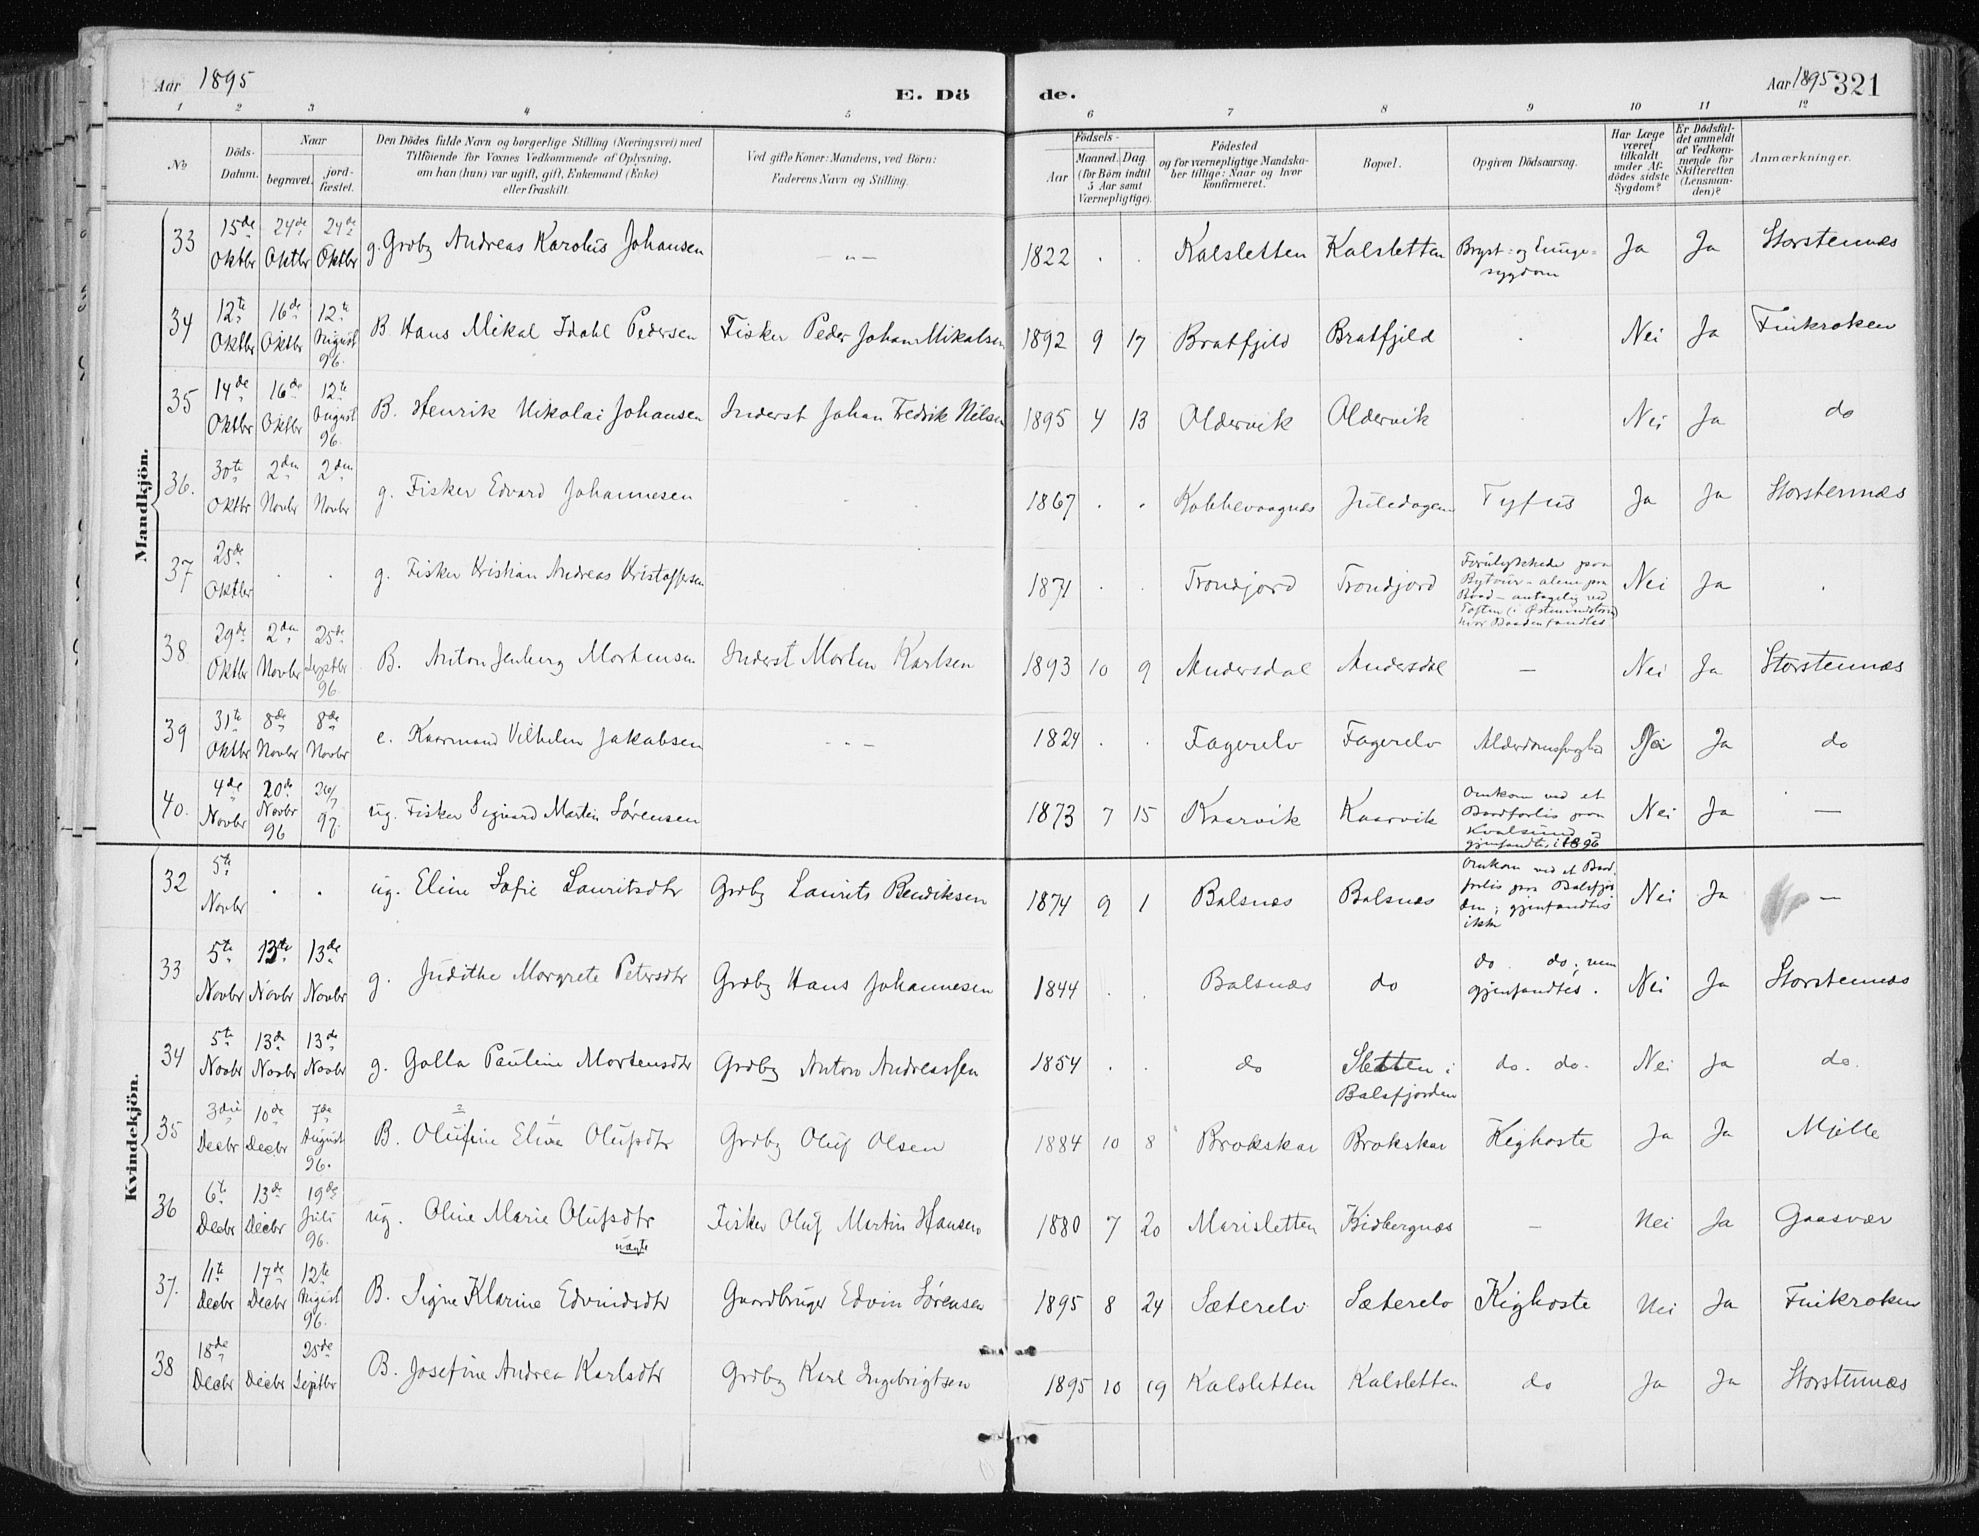 Aar 1895
E. Dö
de.
Aar 1895 321
1 2 3 4 5 6 7 8 9 10 11 12
No
Döds-Datum.
Naar
begravet.
jord-fæstet.
Den Dödes fulde Navn og borgerlige Stilling (Næringsvei) med
Tilföiende for Voxnes Vedkommende af Oplysning,
om han (hun) var ugift, gift, Enkemand (Enke)
eller fraskilt.
Ved gifte Koner: Mandens, ved Börn:
Faderens Navn og Stilling.
Födsels-
Aar
Maaned. Dag
(for Börn indtil
5 Aar samt
Værnepligtige).
Födested
og for værnepligtige Mandska-
ber tillige: Naar og hvor
konfirmeret.
Bopæl.
Opgiven Dödsaarsag.
Har Læge
været
tilkaldt
under Af-
dödes sidste
Sygdom?
Er Dödsfal-
det anmeldt
af Vedkom-
mende for
Skifteretten
(Lensman-
den)?
Anmærkninger.
Mandkjön.
33 15de Oktbr 24de Oktbr 24de Oktbr g. Grdbg Andreas Karolius Johansen — „ — 1822 . . Kalsletten Kalsletten Bryst- og Lunge-sygdom Ja Ja Storstennæs
34 12te Oktbr 16de Oktbr 12te August 96. B Hans Mikal Idahl Pedersen Fisker Peder Johan Mikalsen 1892 9 17 Bratfjeld Bratfjeld . Nei Ja Finkroken
35 14de Oktbr 16de Oktbr 12te August 96. B. Henrik Nikolai Johansen Inderst Johan Fredrik Nilsen 1895 4 13 Oldervik Oldervik . Nei Ja do
36. 30te Oktbr 2den Novbr 2den Novbr g. Fisker Edvard Johannesen 1867 . . Kobbevaagnæs Juledagen Tyfus Ja Ja Storstennæs
37 25de Oktbr . . g. Fisker Kristian Andreas Kristoffersen 1871 . . Trondjord Trondjord Forulykkede paa Bytour – alene paa Baad – antagelig ved Toften hvor Baaden fandtes Nei Ja .
38 29de Oktbr 2den Novbr 25de Septbr 96. B. Anton Jenberg Mortensen Inderst Morten Karlsen 1893 10 9 Andersdal Andersdal — Nei Ja Storstennæs
39 31te Oktbr 8de Novbr 8de Novbr e. Kaarmand Vilhelm Jakobsen — „ — 1824 . . Fagerelv Fagerelv Alderdomssvaghed Nei Ja do
40. 4de Novbr 20de Novbr 96 97. ug. Fisker Sigvard Martin Sørensen 1873 7 15 Kaarvik Kaarvik Omkom ved et Baadforlis paa Kvalsund og gjenfandtes i 1896 Nei Ja —
Kvindekjön.
32 5te Novbr . . ug. Eline Sofie Lauritsdtr Grdbg Laurits Bendiksen 1874 9 1 Balsnæs Balsnæs Omkom ved et Baadforlis paa Balsfjorden; gjenfandtes ikke Nei Ja —
33 5te Novbr 13de Novbr 13de Novbr g. Judithe Margrete Petersdtr Grdbg Hans Johannesen 1844 . . Balsnæs do do. do; men gjenfandtes. Nei Ja Storstennæs
34 5te Novbr 13de Novbr 13de Novbr g. Golla Pauline Mortensdtr Grdbg Anton Andreassen 1854 . . do Sletten i Balsfjorden do. do. Nei Ja do.
35 3die Decbr 10de Decbr 7de August 96. B. Olufine Elise Olufsdtr Grdbg Oluf Olsen 1884 10 8 Brokskar Brokskar Kighoste Ja Ja Mjelle
36 6te Decbr 13de Decbr 19de Juli 96. ug. Oline Marie Olufsdtr uægte Fisker Oluf Martin Hansen 1880 7 20 Marisletten Kidbergnæs — Nei Ja Gaasvær
37. 11te Decbr 17de Decbr 12te August 96. B. Signe Klarine Edvindsdtr Gaardbruger Edvin Sørensen 1895 8 24 Sæterelv Sæterelv Kighoste Nei Ja Finkroken
38 18de Decbr Decbr 25de Septbr B. Josefine Andrea Karlsdtr Grdbg Karl Ingebrigtsen 1895 10 19 Kalsletten Kalsletten do Ja Ja Storstennæs